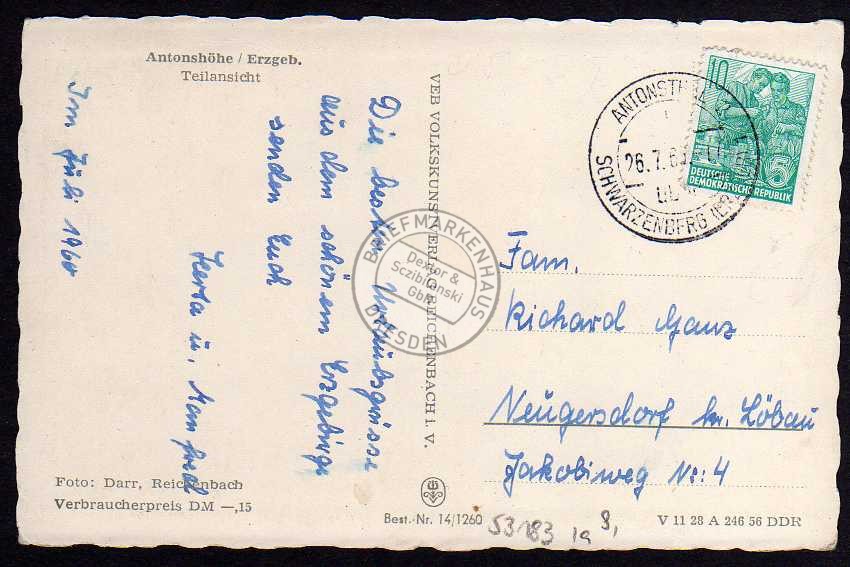 Antonshöhe / Erzgeb.
Teilansicht
Im Juli 1960
Die besten Urlaubsgrüsse
aus dem schönem Erzgebirge
senden Euch
Herta u. Manfred
Foto: Darr, Reichenbach
Verbraucherpreis DM —,15
VEB VOLKSKUNSTVERLAG REICHENBACH i. V.
Best.-Nr. 14/1260
V 11 28 A 246 56 DDR
53183 1a 8,
ANTONSTHAL
26.7.60
SCHWARZENBERG (ERZGEB)
10
5
DEUTSCHE
DEMOKRATISCHE REPUBLIK
Fam.
Richard Ganz
Neugersdorf kr. Löbau
Jakobiweg Nr: 4
BRIEFMARKENHAUS
Dexlor &
Sczibilanski
GbR
DRESDEN